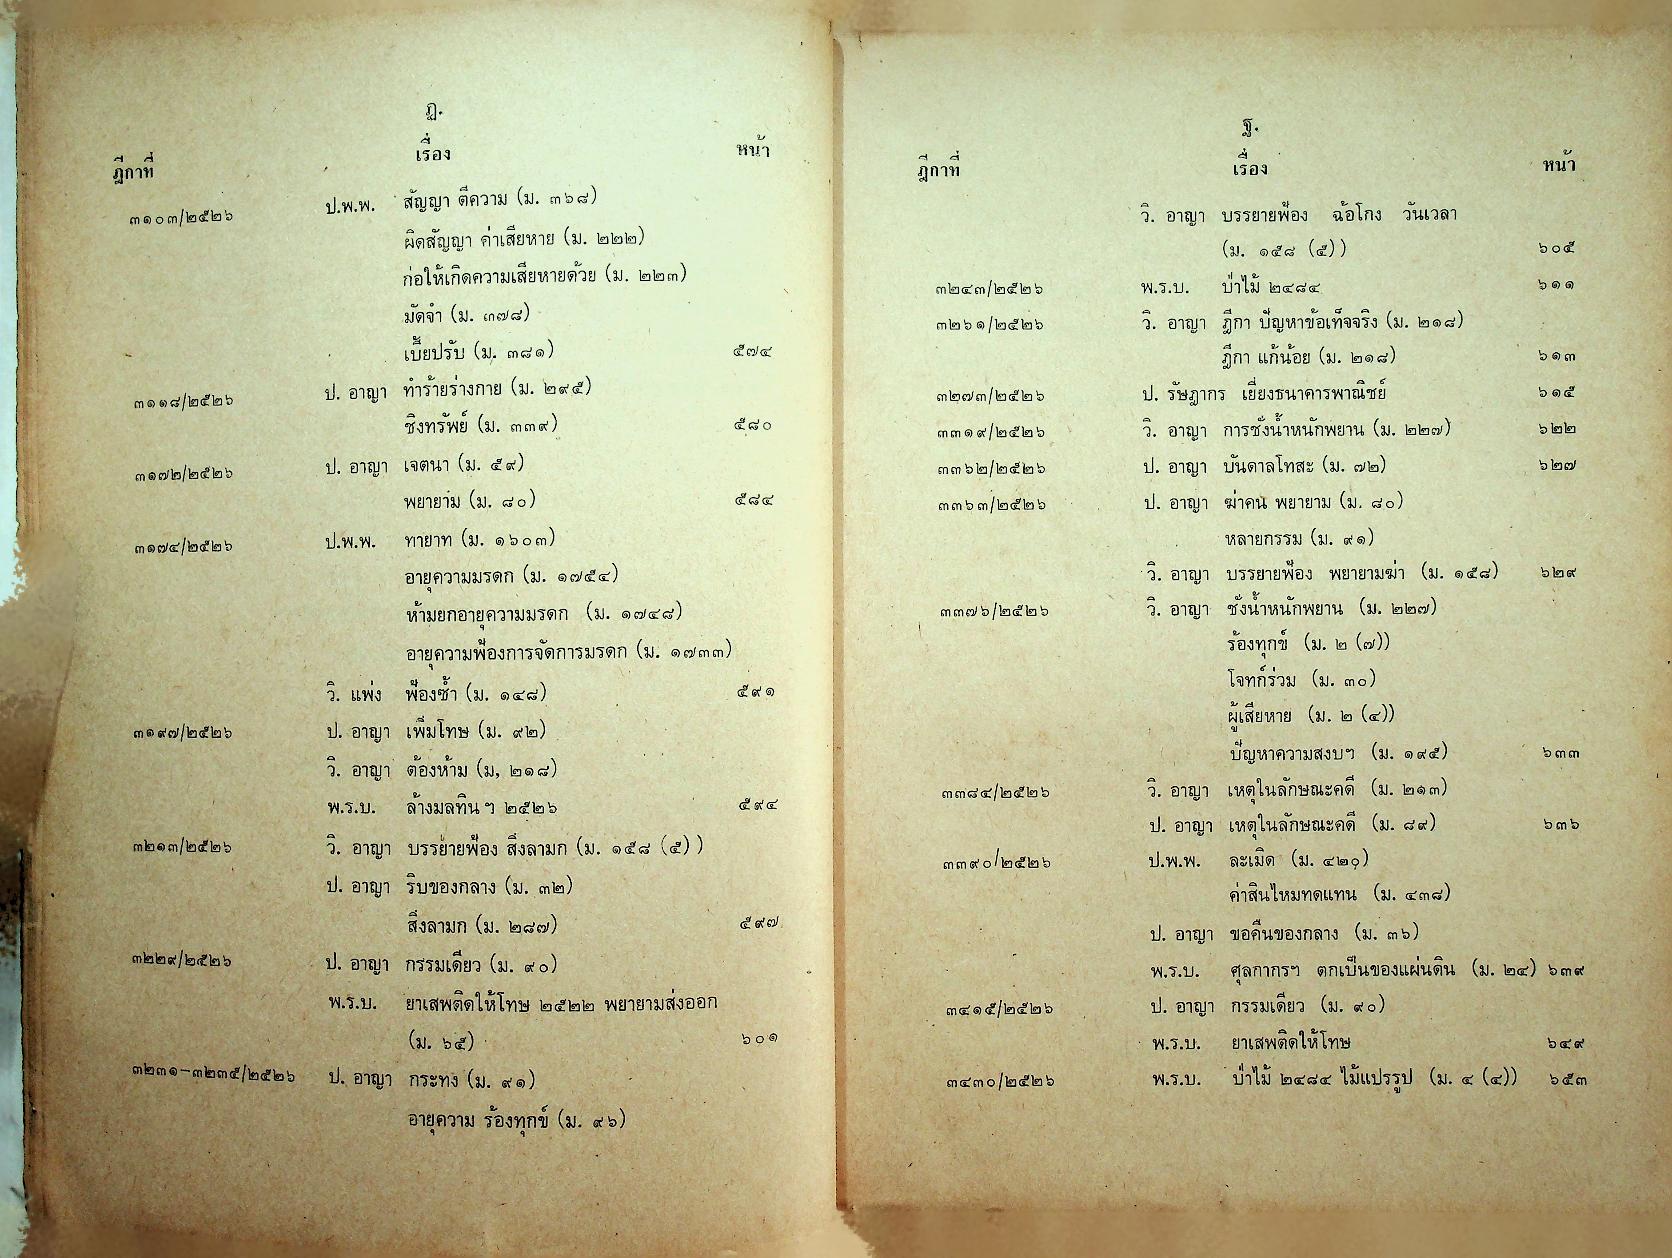 ฎ.
ฎีกาที่ เรื่อง หน้า
๓๑๐๓/๒๕๒๖ ป.พ.พ. สัญญา ตีความ (ม. ๓๖๘)
ผิดสัญญา ค่าเสียหาย (ม. ๒๒๒)
ก่อให้เกิดความเสียหายด้วย (ม. ๒๒๓)
มัดจำ (ม. ๓๗๘)
เบี้ยปรับ (ม. ๓๘๑) ๕๗๔
๓๑๑๘/๒๕๒๖ ป. อาญา ทำร้ายร่างกาย (ม. ๒๙๕)
ชิงทรัพย์ (ม. ๓๓๙) ๕๘๐
๓๑๗๒/๒๕๒๖ ป. อาญา เจตนา (ม. ๕๙)
พยายาม (ม. ๘๐) ๕๘๔
๓๑๗๔/๒๕๒๖ ป.พ.พ. ทายาท (ม. ๑๖๐๓)
อายุความมรดก (ม. ๑๗๕๔)
ห้ามยกอายุความมรดก (ม. ๑๗๔๘)
อายุความฟ้องการจัดการมรดก (ม. ๑๗๓๓)
วิ. แพ่ง ฟ้องซ้ำ (ม. ๑๔๘) ๕๙๑
๓๑๙๗/๒๕๒๖ ป. อาญา เพิ่มโทษ (ม. ๙๒)
วิ. อาญา ต้องห้าม (ม, ๒๑๘)
พ.ร.บ. ล้างมลทินฯ ๒๕๒๖ ๕๙๔
๓๒๑๓/๒๕๒๖ วิ. อาญา บรรยายฟ้อง สิ่งลามก (ม. ๑๕๘ (๕) )
ป. อาญา ริบของกลาง (ม. ๓๒)
สิ่งลามก (ม. ๒๘๗) ๕๙๗
๓๒๒๙/๒๕๒๖ ป. อาญา กรรมเดียว (ม. ๙๐)
พ.ร.บ. ยาเสพติดให้โทษ ๒๕๒๒ พยายามส่งออก
(ม. ๖๕) ๖๐๑
๓๒๓๑-๓๒๓๕/๒๕๒๖ ป. อาญา กระทง (ม. ๙๑)
อายุความ ร้องทุกข์ (ม. ๙๖)
ฐ.
ฎีกาที่ เรื่อง หน้า
วิ. อาญา บรรยายฟ้อง ฉ้อโกง วันเวลา
(ม. ๑๕๘ (๕) ) ๖๐๕
๓๒๔๓/๒๕๒๖ พ.ร.บ. ป่าไม้ ๒๔๘๔ ๖๑๑
๓๒๖๑/๒๕๒๖ วิ. อาญา ฎีกา ปัญหาข้อเท็จจริง (ม. ๒๑๘)
ฎีกา แก้น้อย (ม. ๒๑๘) ๖๑๓
๓๒๗๓/๒๕๒๖ ป. รัษฎากร เยี่ยงธนาคารพาณิชย์ ๖๑๕
๓๓๑๙/๒๕๒๖ วิ. อาญา การชั่งน้ำหนักพยาน (ม. ๒๒๗) ๖๒๒
๓๓๖๒/๒๕๒๖ ป. อาญา บันดาลโทสะ (ม. ๗๒) ๖๒๗
๓๓๖๓/๒๕๒๖ ป. อาญา ฆ่าคน พยายาม (ม. ๘๐)
หลายกรรม (ม. ๙๑)
วิ. อาญา บรรยายฟ้อง พยายามฆ่า (ม. ๑๕๘) ๖๒๙
๓๓๗๖/๒๕๒๖ วิ. อาญา ชั่งน้ำหนักพยาน (ม. ๒๒๗)
ร้องทุกข์ (ม. ๒ (๗))
โจทก์ร่วม (ม. ๓๐)
ผู้เสียหาย (ม. ๒ (๔))
ปัญหาความสงบฯ (ม. ๑๙๕) ๖๓๓
๓๓๘๔/๒๕๒๖ วิ. อาญา เหตุในลักษณะคดี (ม. ๒๑๓)
ป. อาญา เหตุในลักษณะคดี (ม. ๘๙) ๖๓๖
๓๓๙๐/๒๕๒๖ ป.พ.พ. ละเมิด (ม. ๔๒๐)
ค่าสินไหมทดแทน (ม. ๔๓๘)
ป. อาญา ขอคืนของกลาง (ม. ๓๖)
พ.ร.บ. ศุลกากรฯ ตกเป็นของแผ่นดิน (ม. ๒๔) ๖๓๙
๓๔๑๕/๒๕๒๖ ป. อาญา กรรมเดียว (ม. ๙๐)
พ.ร.บ. ยาเสพติดให้โทษ ๖๔๙
๓๔๓๐/๒๕๒๖ พ.ร.บ. ป่าไม้ ๒๔๘๔ ไม้แปรรูป (ม. ๔ (๔)) ๖๕๓